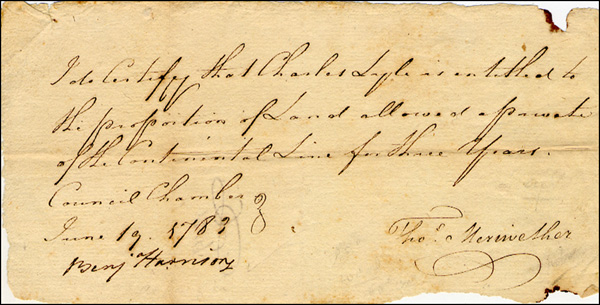 I do Certify that Charles Lyle is entitled to
the proportion of Land allowed a private
of the Continental Line for three Years.
Council Chamber
June 19. 1783
Thos. Meriwether
Benja Harrison